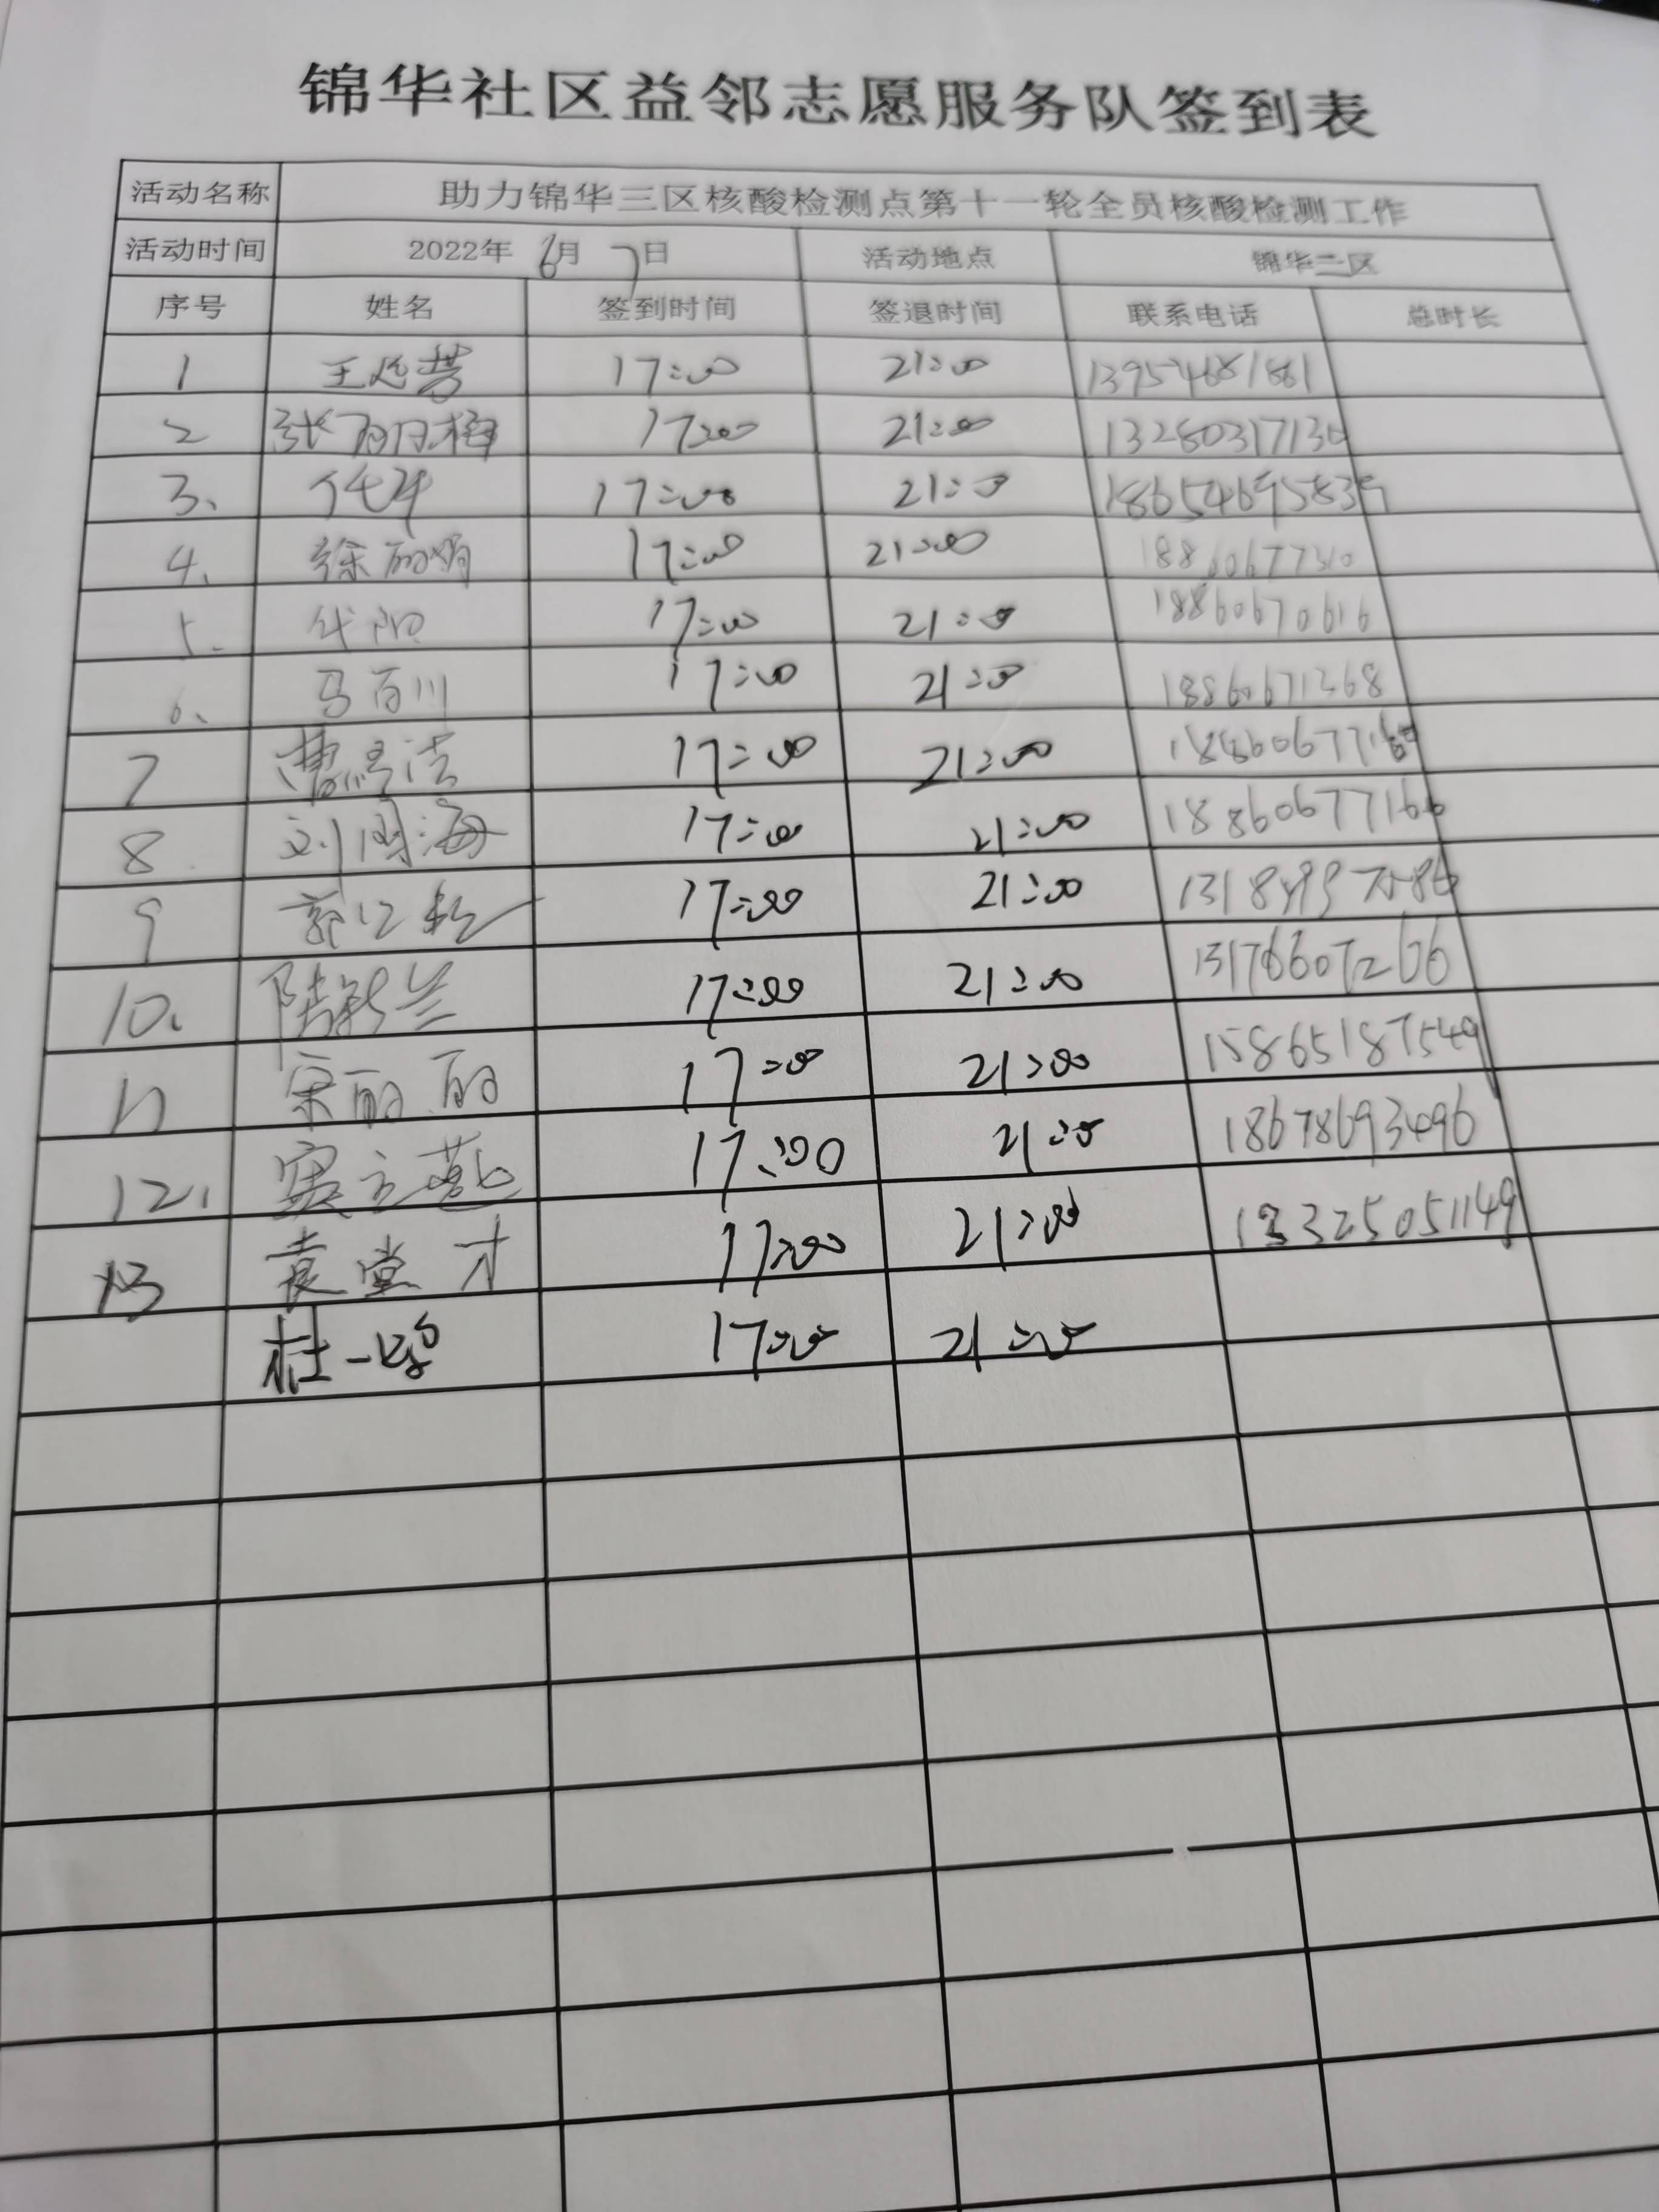 锦华社区益邻志愿服务队签到表
活动名称 助力锦华三区核酸检测点第十一轮全员核酸检测工作
活动时间 2022年 6月 7日 活动地点 锦华二区
序号 姓名 签到时间 签退时间 联系电话 总时长
1 17:00 21:00
2 张丽梅 17:00 21:00 13280317130
3、 17:00 21:00 18654695839
4、 徐丽娟 17:00 21:00
5. 代阳 17:00 21:00 18860670616
6、 马百川 17:00 21:00 18860671368
7 17:00 21:00
8 17:00 21:00 18860677166
9 17:00 21:00
10、 17:00 21:00 13176607266
11 宋丽丽 17:00 21:00 15865187549
12、 17:00 21:00 18678693496
13 袁堂才 17:00 21:00 13325051149
17:00 21:00